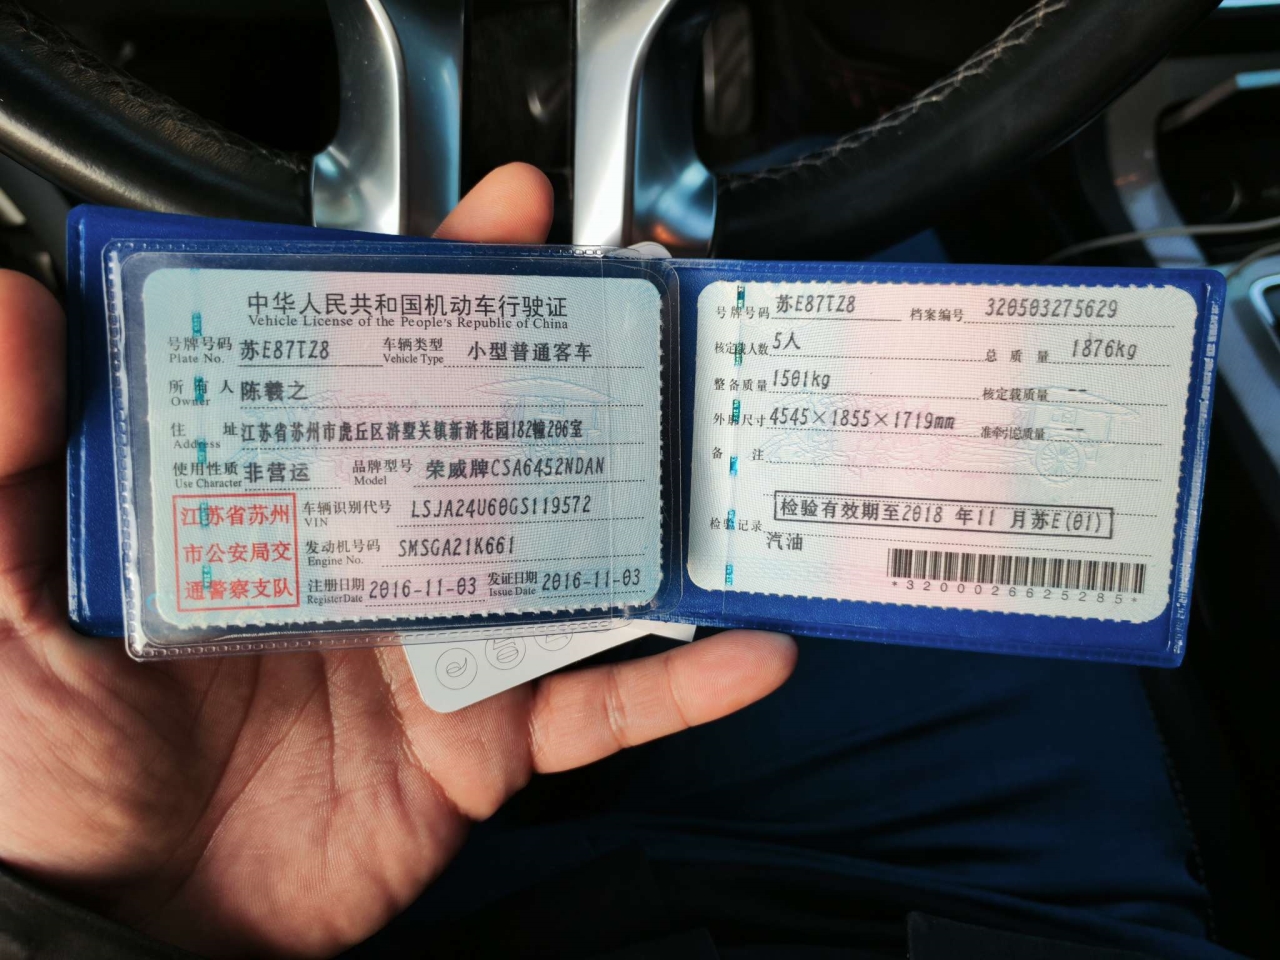 中华人民共和国机动车行驶证
Vehicle License of the People's Republic of China
号牌号码 Plate No. 苏E87TZ8 车辆类型 Vehicle Type 小型普通客车
所有人 Owner 陈羲之
住址 Address 江苏省苏州市虎丘区浒墅关镇新浒花园182幢206室
使用性质 Use Character 非营运 品牌型号 Model 荣威牌CSA6452NDAN
江苏省苏州
市公安局交
通警察支队
车辆识别代号 VIN LSJA24U60GS119572
发动机号码 Engine No. SMSGA21K661
注册日期 Register Date 2016-11-03 发证日期 Issue Date 2016-11-03
号牌号码 苏E87TZ8 档案编号 320503275629
核定载人数 5人 总质量 1876kg
整备质量 1501kg 核定载质量 --
外廓尺寸 4545×1855×1719mm 准牵引总质量 --
备注
检验记录 检验有效期至2018 年11 月苏E(01)
汽油
*3200026625285*